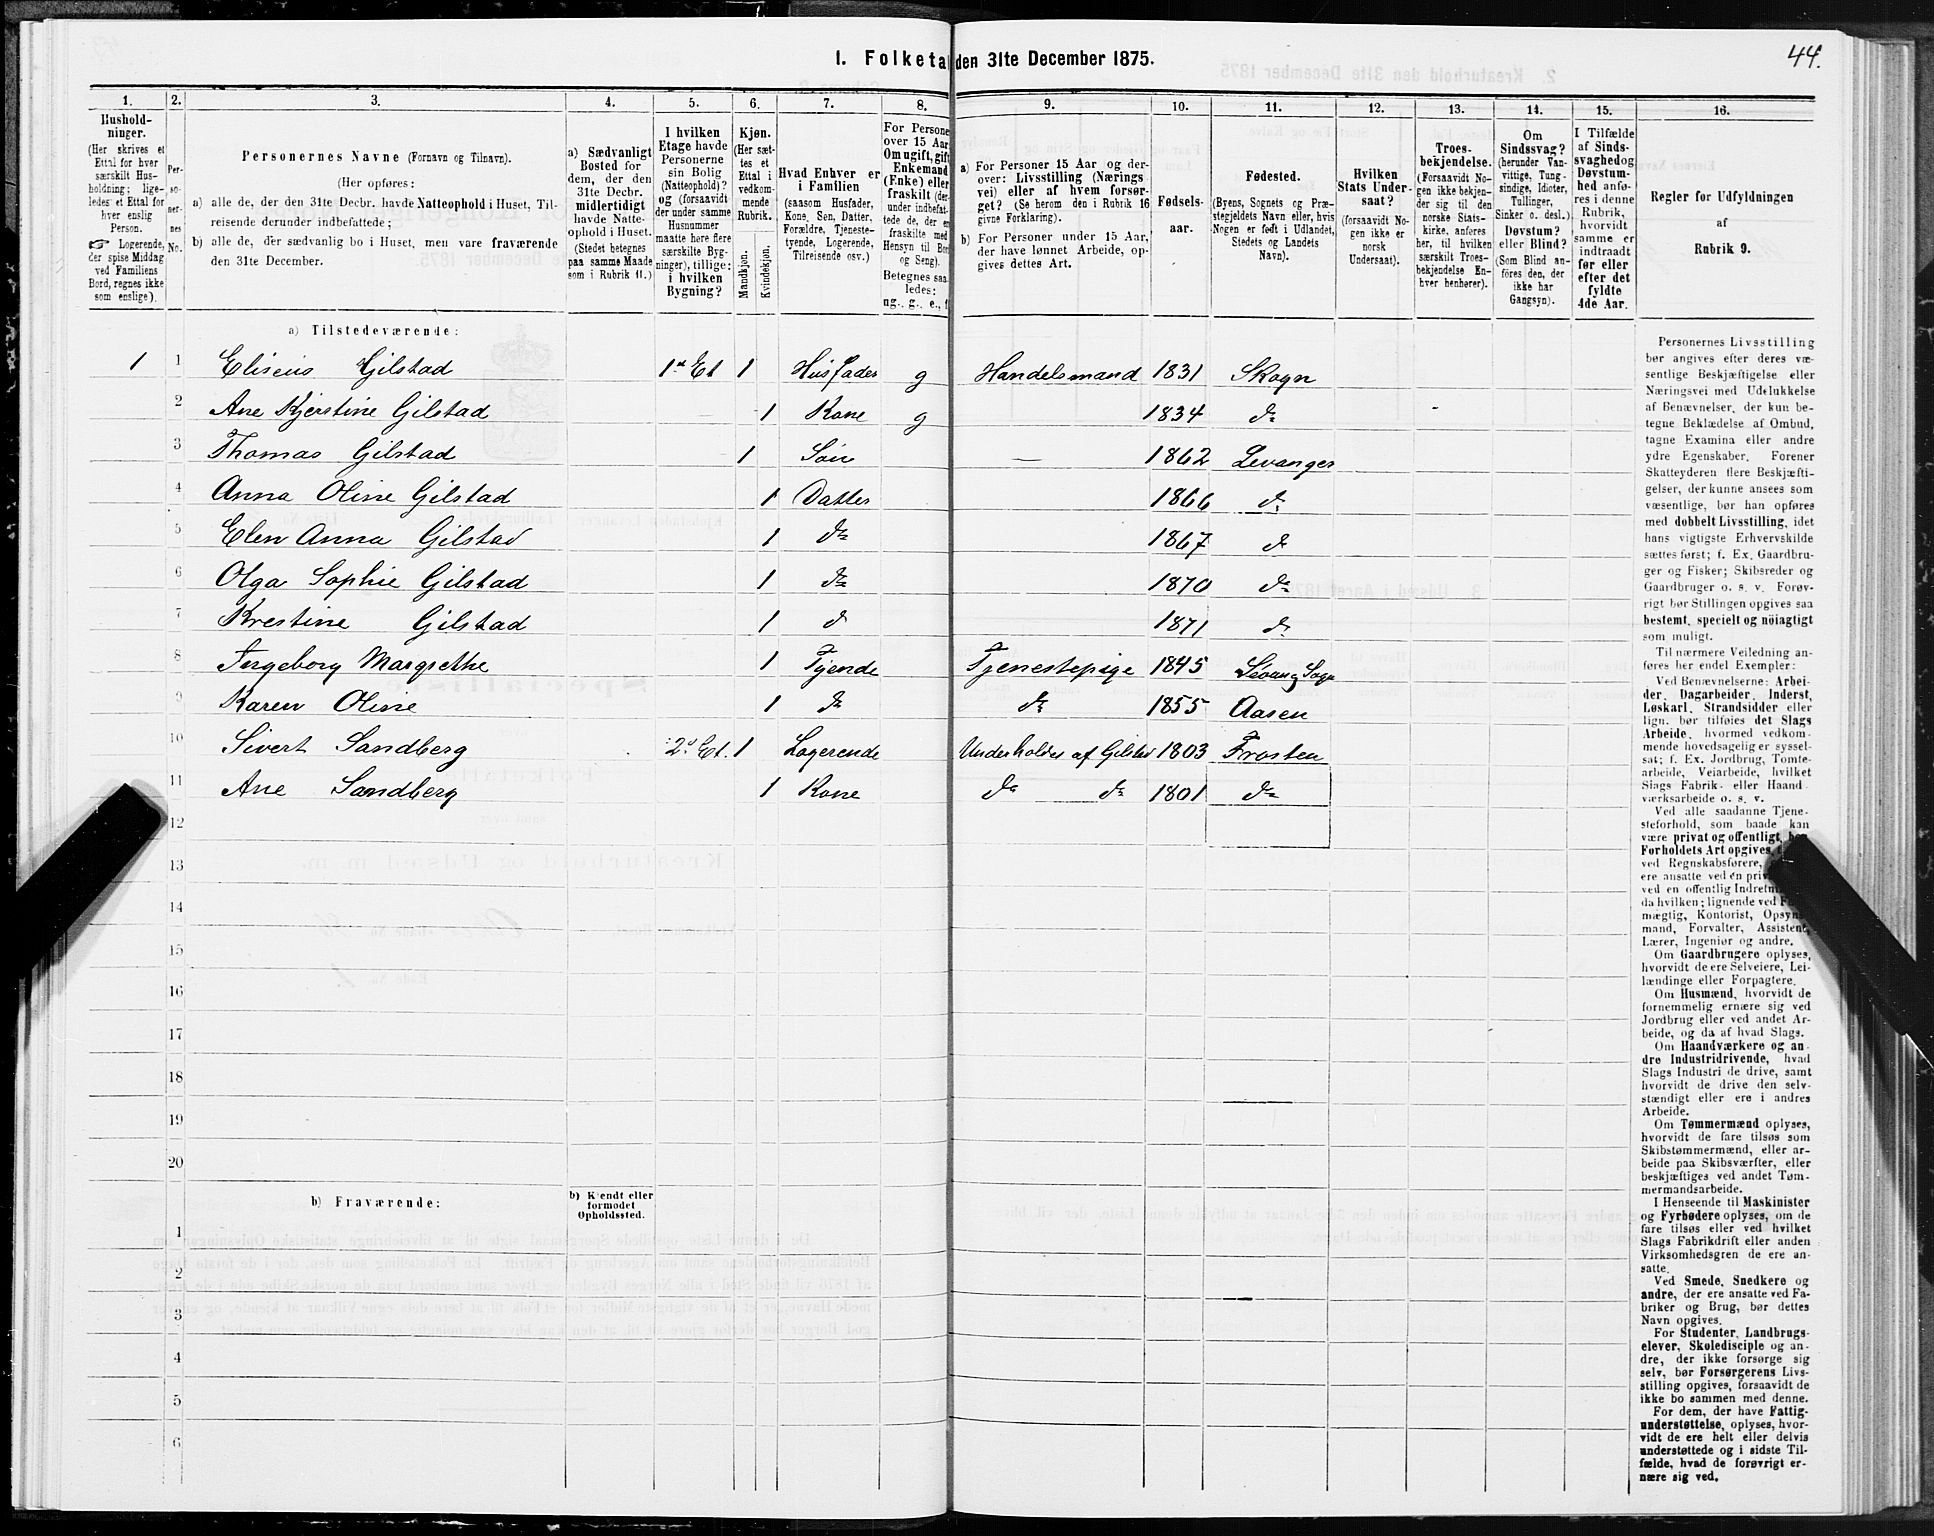 44.
1. Folketal den 31te December 1875.
1. 2. 3. 4. 5. 6. 7. 8. 9. 10. 11. 12. 13. 14. 15. 16.
Hushold-
ninger.
(Her skrives et
Ettal for hver
særskilt Hus-
holdning; lige-
ledes et Ettal for
hver enslig
Person.
☞ Logerende,
der spise Middag
ved Familiens
Bord, regnes ikke
som enslige).
Per-
so-
ner-
nes
No.
Personernes Navne (Fornavn og Tilnavn).
(Her opføres:
a) alle de, der den 31te Decbr. havde Natteophold i Huset, Til-
reisende derunder indbefattede;
b) alle de, der sædvanlig bo i Huset, men vare fraværende
den 31te December.
a) Sædvanligt
Bosted for
dem, der den
31te Decbr.
midlertidigt
havde Natte-
ophold i Huset.
(Stedet betegnes
paa samme Maade
som i Rubrik 11.)
I hvilken
Etage havde
Personerne
sin Bolig
(Natteophold)?
og (forsaavidt
der under samme
Husnummer
maatte høre flere
særskilte Byg-
ninger), tillige:
i hvilken
Bygning?
Kjøn.
(Her sæt-
tes et
Ettal i
vedkom-
mende
Rubrik.
Mandkjøn.
Kvindekjøn.
Hvad Enhver er
i Familien
(saasom Husfader,
Kone, Søn, Datter,
Forældre, Tjeneste-
tyende, Logerende,
Tilreisende osv.)
For Persone
over 15 Aar
Om ugift, gift
Enkemand
(Enke) eller
fraskilt (der-
under indbefat-
tede de, der er
fraskilte med
Hensyn til Bor
og Seng).
Betegnes saa-
ledes:
ug., g., e., f
a) For Personer 15 Aar og der-
over: Livsstilling (Nærings
vei) eller af hvem forsør-
get? (Se herom den i Rubrik 16
givne Forklaring).
b) For Personer under 15 Aar,
der have lønnet Arbeide, op-
gives dettes Art.
Fødsels-
aar.
Fødested.
(Byens, Sognets og Præ-
stegjeldets Navn eller, hvis
Nogen er født i Udlandet,
Stedets og Landets
Navn).
Hvilken
Stats Under-
saat?
(forsaavidt No-
gen ikke er
norsk
Undersaat).
Troes-
bekjendelse.
(Forsaavidt No-
gen ikke bekjen-
der sig til den
norske Stats-
kirke, anføres
her, til hvilken
særskilt Troes-
bekjendelse En-
hver henhører).
Om
Sindssvag?
(herunder Van-
vittige, Tung-
sindige, Idioter,
Tullinger,
Sinker o. desl.)
Døvstum?
eller Blind?
(Som Blind an-
føres den, der
ikke har
Gangsyn).
I Tilfælde
af Sinds-
svaghed og
Døvstum-
hed anfø-
res i denne
Rubrik,
hvorvidt
samme er
indtraadt
før eller
efter det
fyldte
4de Aar.
Regler for Udfyldningen
af
Rubrik 9.
a) Tilstedeværende:
1 1 Eliseus Gilstad 1ste Et 1 Husfader g Handelsmand 1831 Skogn
2 Ane Kjerstine Gilstad 1 Kone g 1834 do
3 Thomas Gilstad 1 Søn — 1862 Levanger
4 Anna Oline Gilstad 1 Datter 1866 do
5 Elen Anna Gilstad 1 do 1867 do
6 Olga Sophie Gilstad 1 do 1870 do
7 Krestine Gilstad 1 do 1871 do
8 Ingeborg Margrethe 1 Tjende Tjenestepige 1845
9 Karen Oline 1 do do 1855 Aasen
10 Sivert Sandberg 2d Et. 1 Logerende Underholdes af Gilstad 1803 Frosten
11 Ane Sandberg 1 Kone do do 1801 do
12
13
14
15
16
17
18
19
20
b) Fraværende:
b) Kjendt eller
formodet
Opholdssted.
1
2
3
4
5
6
Personernes Livsstilling
bør angives efter deres væ-
sentlige Beskjæftigelse eller
Næringsvei med Udelukkelse
af Benævnelser, der kun be-
tegne Beklædelse af Ombud,
tagne Examina eller andre
ydre Egenskaber. Forener
Skatteyderen flere Beskjæfti-
gelser, der kunne ansees som
væsentlige, bør han opføres
med dobbelt Livsstilling, idet
hans vigtigste Erhvervskilde
sættes først; f. Ex. Gaardbru-
ger og Fisker; Skibsreder og
Gaardbruger o. s. v. Forøv-
rigt bør Stillingen opgives saa
bestemt, specielt og nöiagtigt
som muligt.
Til nærmere Veiledning an-
føres her endel Exempler:
Ved Benævnelserne: Arbei-
der, Dagarbeider, Inderst,
Løskarl, Strandsidder eller
lign. bør tilføies det Slags
Arbeide, hvormed vedkom-
mende hovedsagelig er syssel-
sat; f. Ex. Jordbrug, Tomte-
arbeide, Veiarbeide, hvilket
Slags Fabrik- eller Haand
værksarbeide o. s. v.
Ved alle saadanne Tjene-
steforhold, som baade kan
være privat og offentligt, bør
Forholdets Art opgives,
ved Regnskabsførere,
ere ansatte ved en priv
ved en offentlig Indretni
da hvilken; lignende ved F
mægtig, Kontorist, Opsyns
mand, Forvalter, Assistent,
Lærer, Ingeniør og andre.
Om Gaardbrugere oplyses,
hvorvidt de ere Selveiere, Lei-
lændinge eller Forpagtere.
Om Husmænd, hvorvidt de
fornemmelig ernære sig ved
Jordbrug eller ved andet Ar-
beide, og da af hvad Slags.
Om Haandværkere og an
dre Industridrivende, hvad
Slags Industri de drive, samt
hvorvidt de drive den selv-
stændigt eller ere i andres
Arbeide.
Om Tømmermænd oplyses,
hvorvidt de fare tilsøs som
Skibstømmermænd, eller ar-
beide paa Skibsværfter, eller
beskjæftiges ved andet Tøm-
mermandsarbeide.
I Henseende til Maskinister
og Fyrbødere oplyses, om de
fare tilsøs eller ved hvilket
Slags Fabrikdrift eller anden
Virksomhedsgren de ere an-
satte.
Ved Smede, Snedkere og
andre, der ere ansatte ved Fa-
briker og Brug, bør dettes
Navn opgives.
For Studenter, Landbrugs-
elever, Skoledisciple og an-
dre, der ikke forsørge sig
selv, bør Forsørgerens Livs-
stilling opgives, forsaavidt de
ikke bo sammen med denne.
For dem, der have Fattig-
understøttelse, oplyses, hvor-
vidt de ere helt eller delvis
understøttede og i sidste Til-
fælde, hvad de forøvrigt er-
nære sig ved.